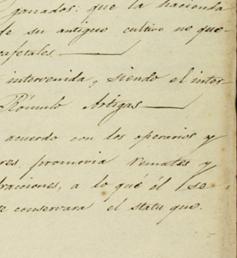 ganados: que la hacienda
de su antiguo cultivo no que-
cafetales
intervenida, siendo el inter-
Rómulo Artigas
acuerdo con los operarios y
res promovia remates y
raciones, a lo qué él se
conservara el statu quo.